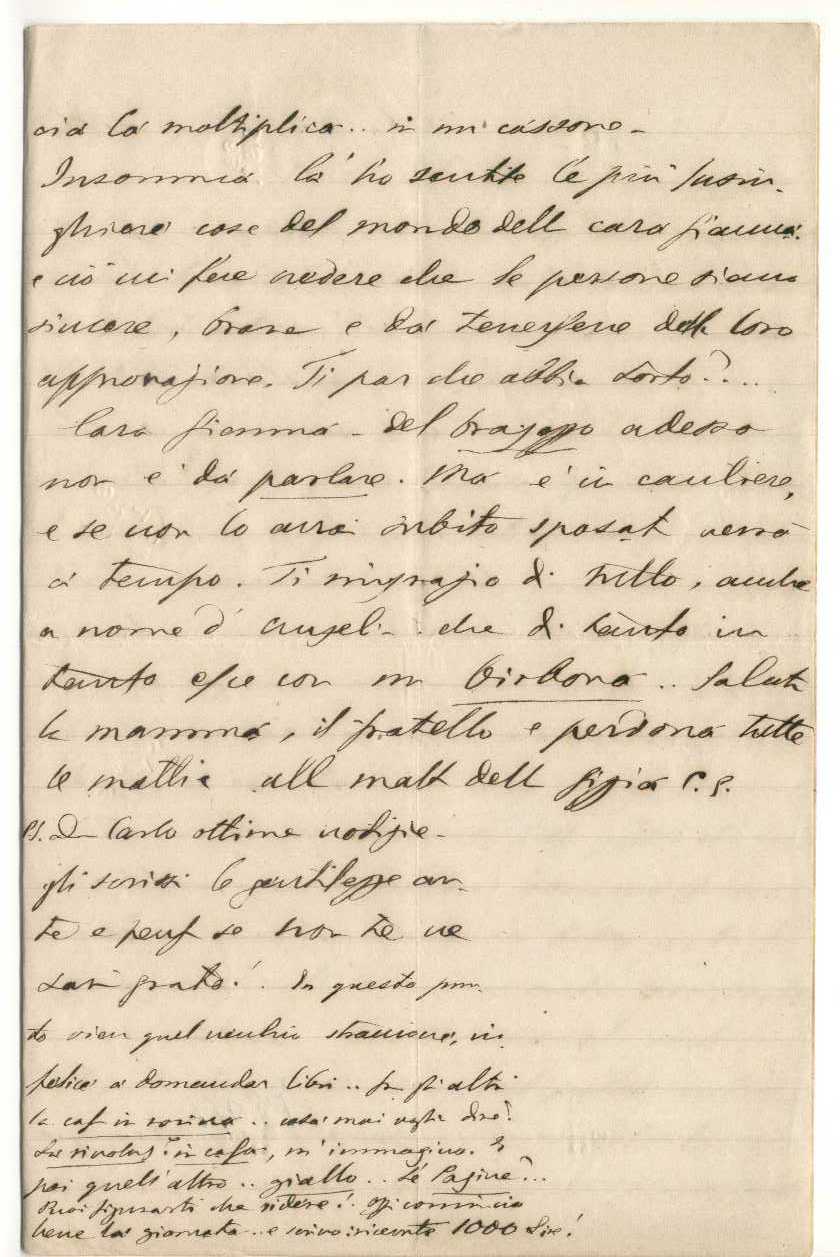 cia la moltiplica.. in un cassone -
Insomma là ho sentite le più lusin-
ghiere cose del mondo dell cara Gianna.
e ciò mi fece vedere che le persone siano
sincere, brave e da tenersene dell loro
approvazione. Ti par che abbia torto?...
Cara Gianna - del braggozzo adesso
non è da parlare. Ma è in cantiere,
e se non lo avrà subito sposat verrà
a tempo. Ti ringrazio di tutto, anche
a nome d' Angeli - che di tanto in
tanto esce con un birbona.. Saluta
la mamma, il fratello e perdona tutte
le mattie all matt dell zizzia C. G.
PS. Da Carlo ottime notizie -
gli scrissi le gentilezze
te e se non te ne
sarà grato! In questo pun-
to vien quel vecchio in-
felice a domandar libri.. fra gli altri
la in rovina.. cosa mai voglia dire?
La in casa, m'immagino. E
poi quell'altro.. giallo.. Le Pagine?..
Puoi figurarti che ridere! Oggi comincia
bene la giornata.. e 1000 Lire!